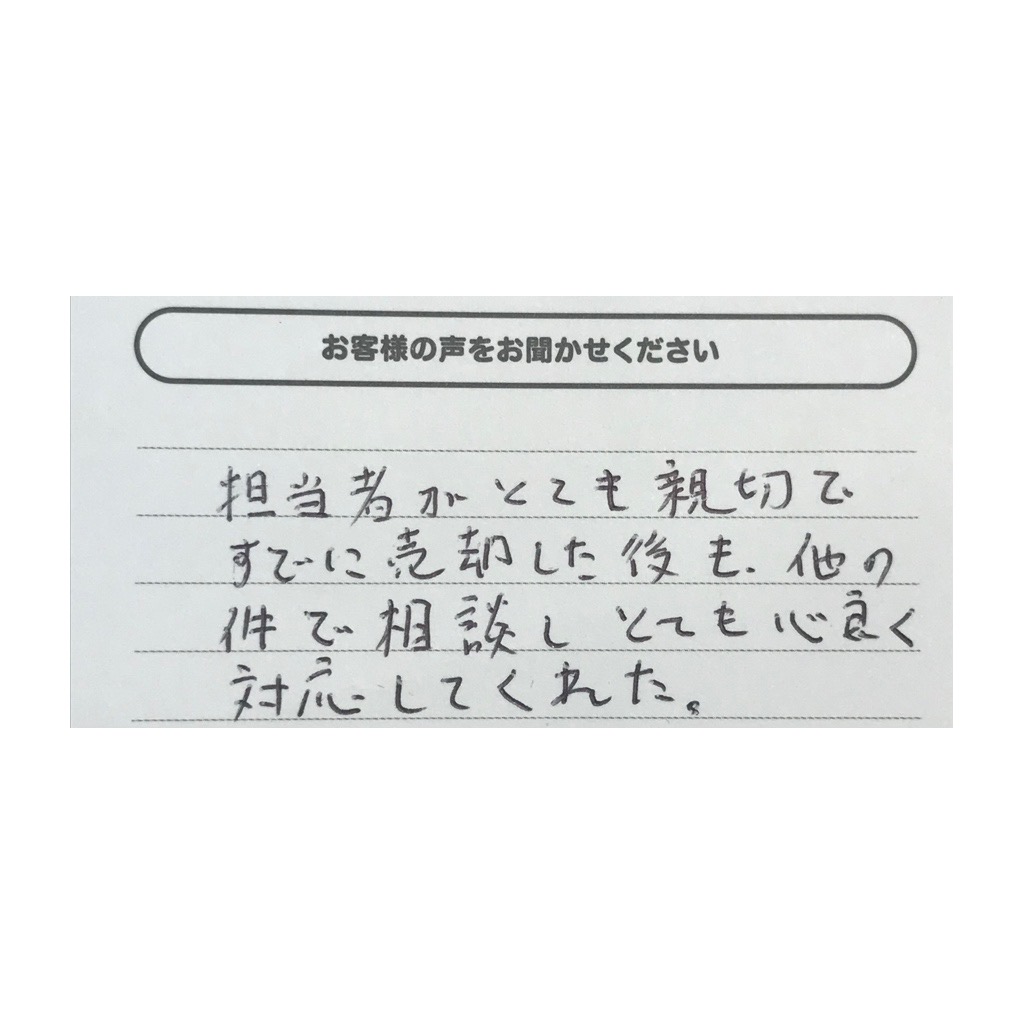 お客様の声をお聞かせください
担当者がとても親切で
すでに売却した後も、他の
件で相談しとても心良く
対応してくれた。